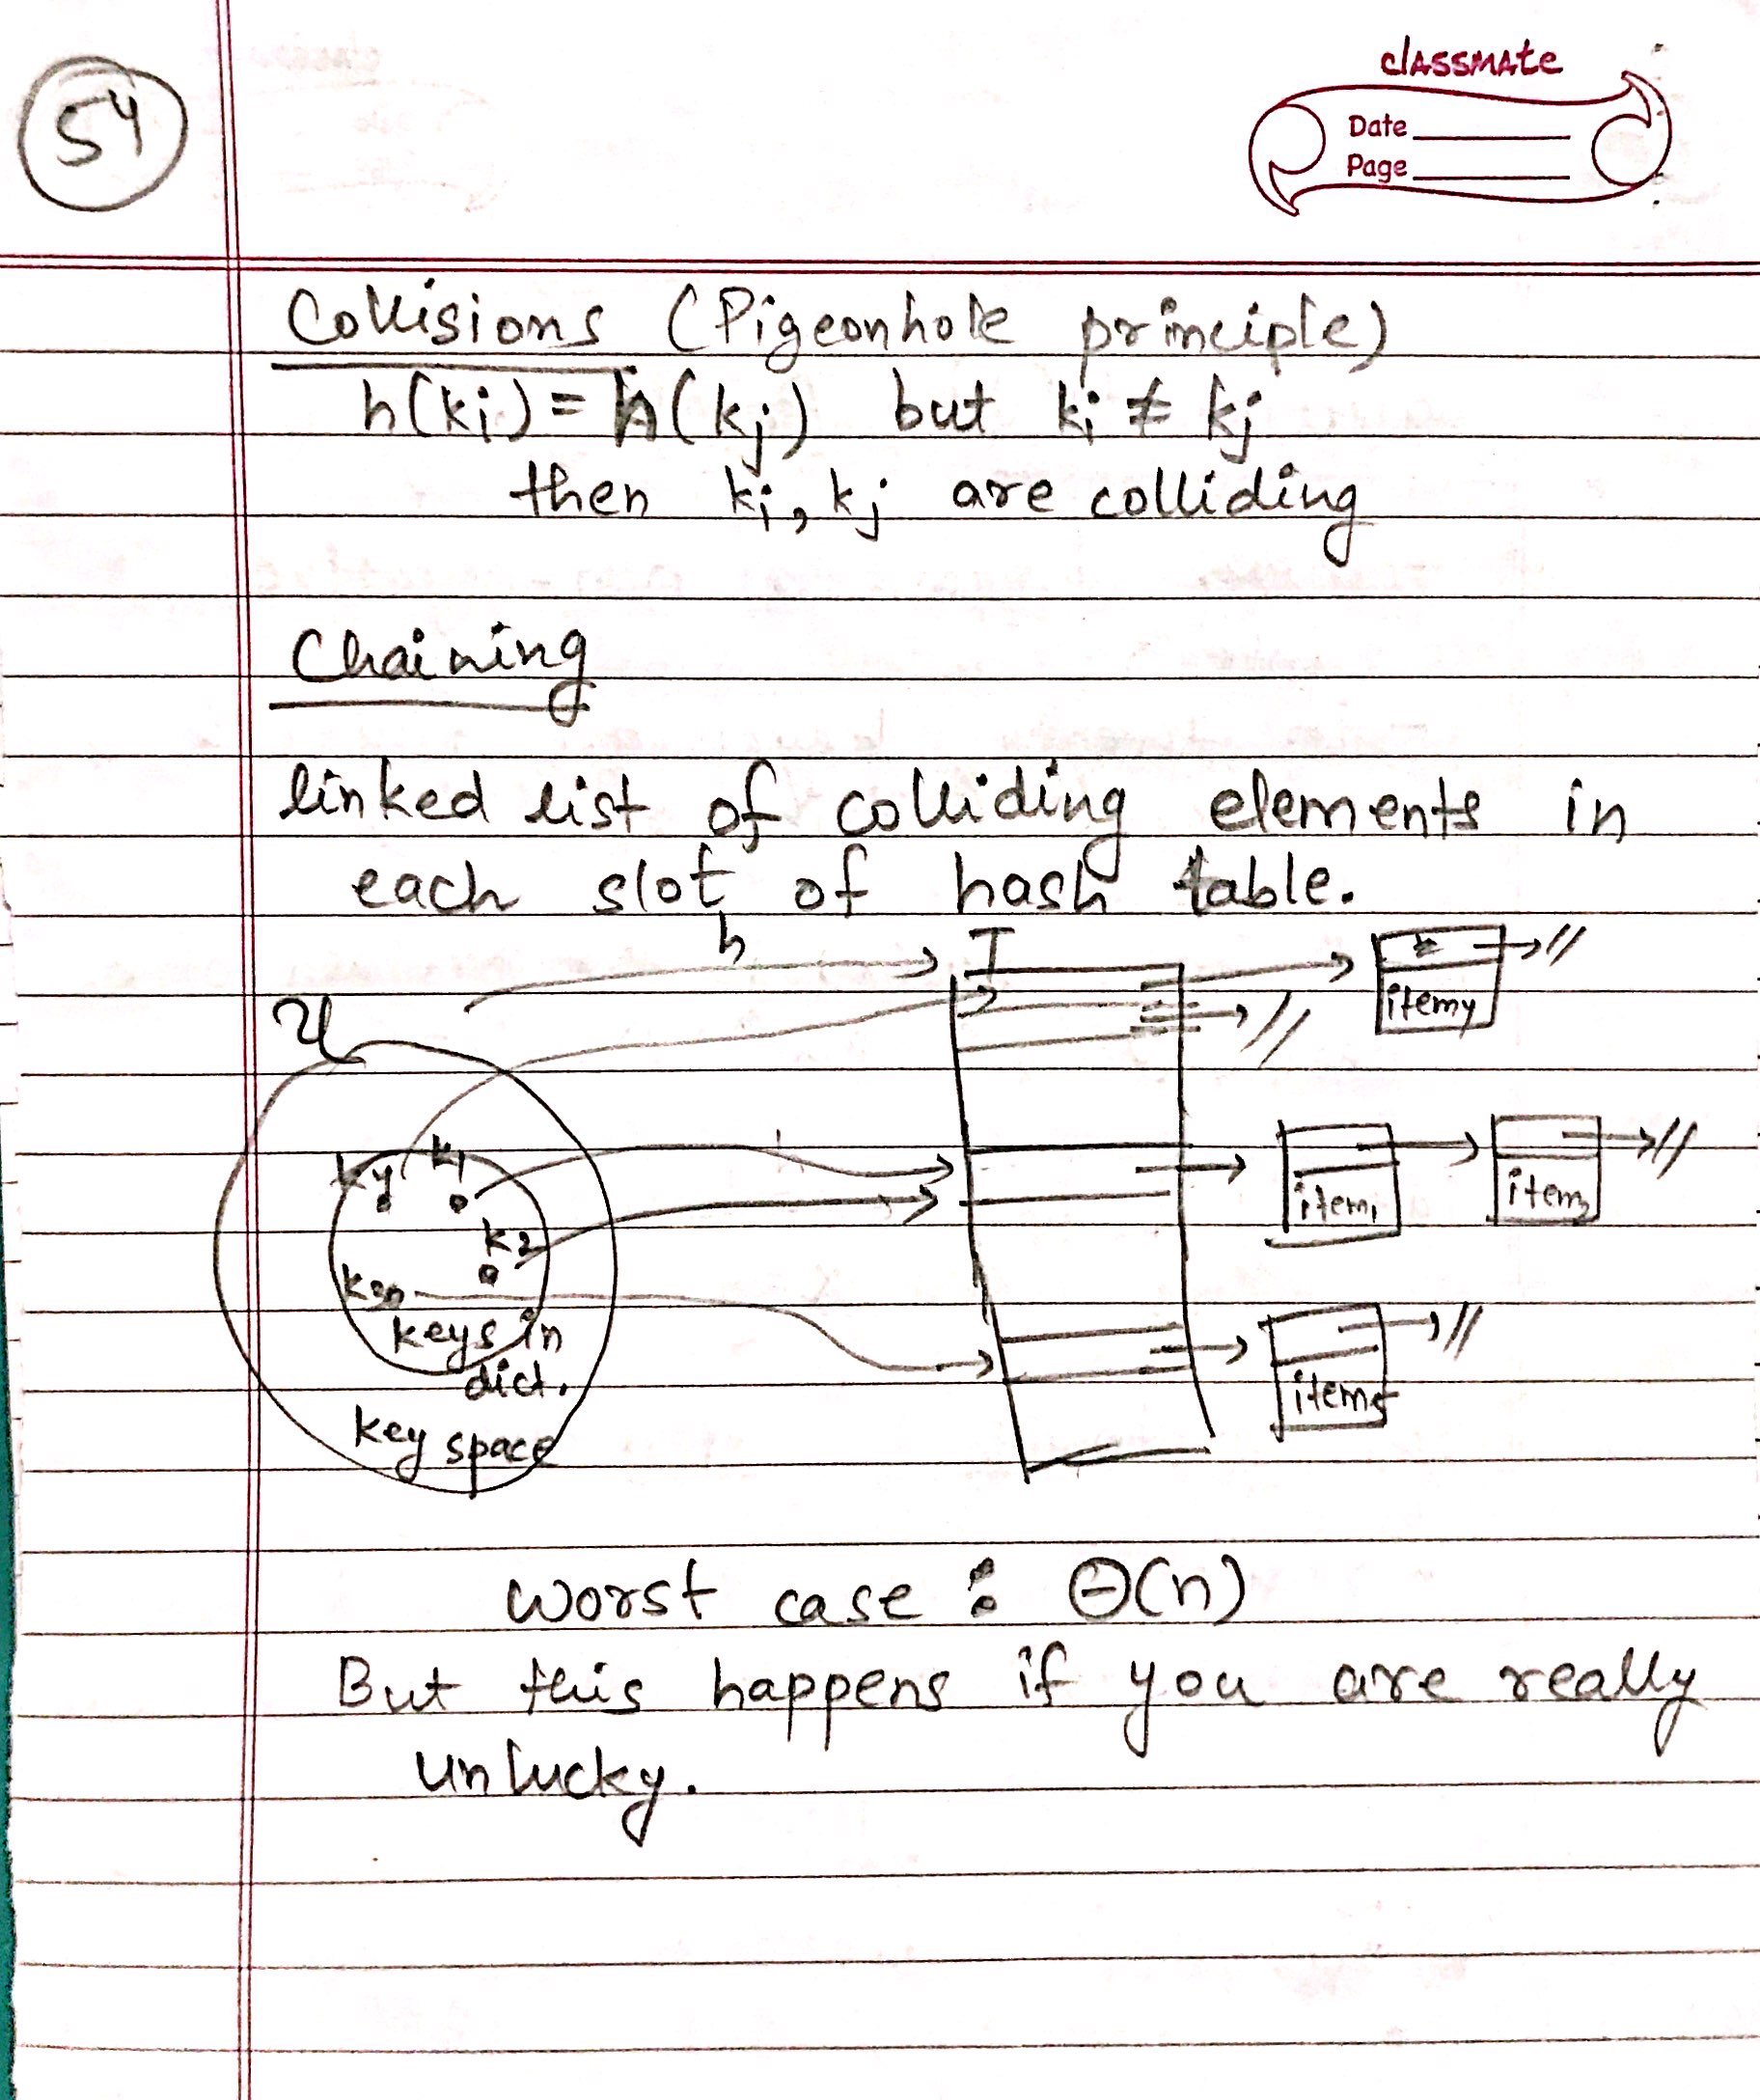 54
classmate
Date
Page
Collisions (Pigeonhole principle)
h(ki) = h(kj) but ki ≠ kj
then ki, kj are colliding
Chaining
linked list of colliding elements in
each slot of hash table.
h
T
U
item4
k4 k1
item1
item2
k2
keys in
dict.
key space
worst case : Θ(n)
But this happens if you are really
unlucky.